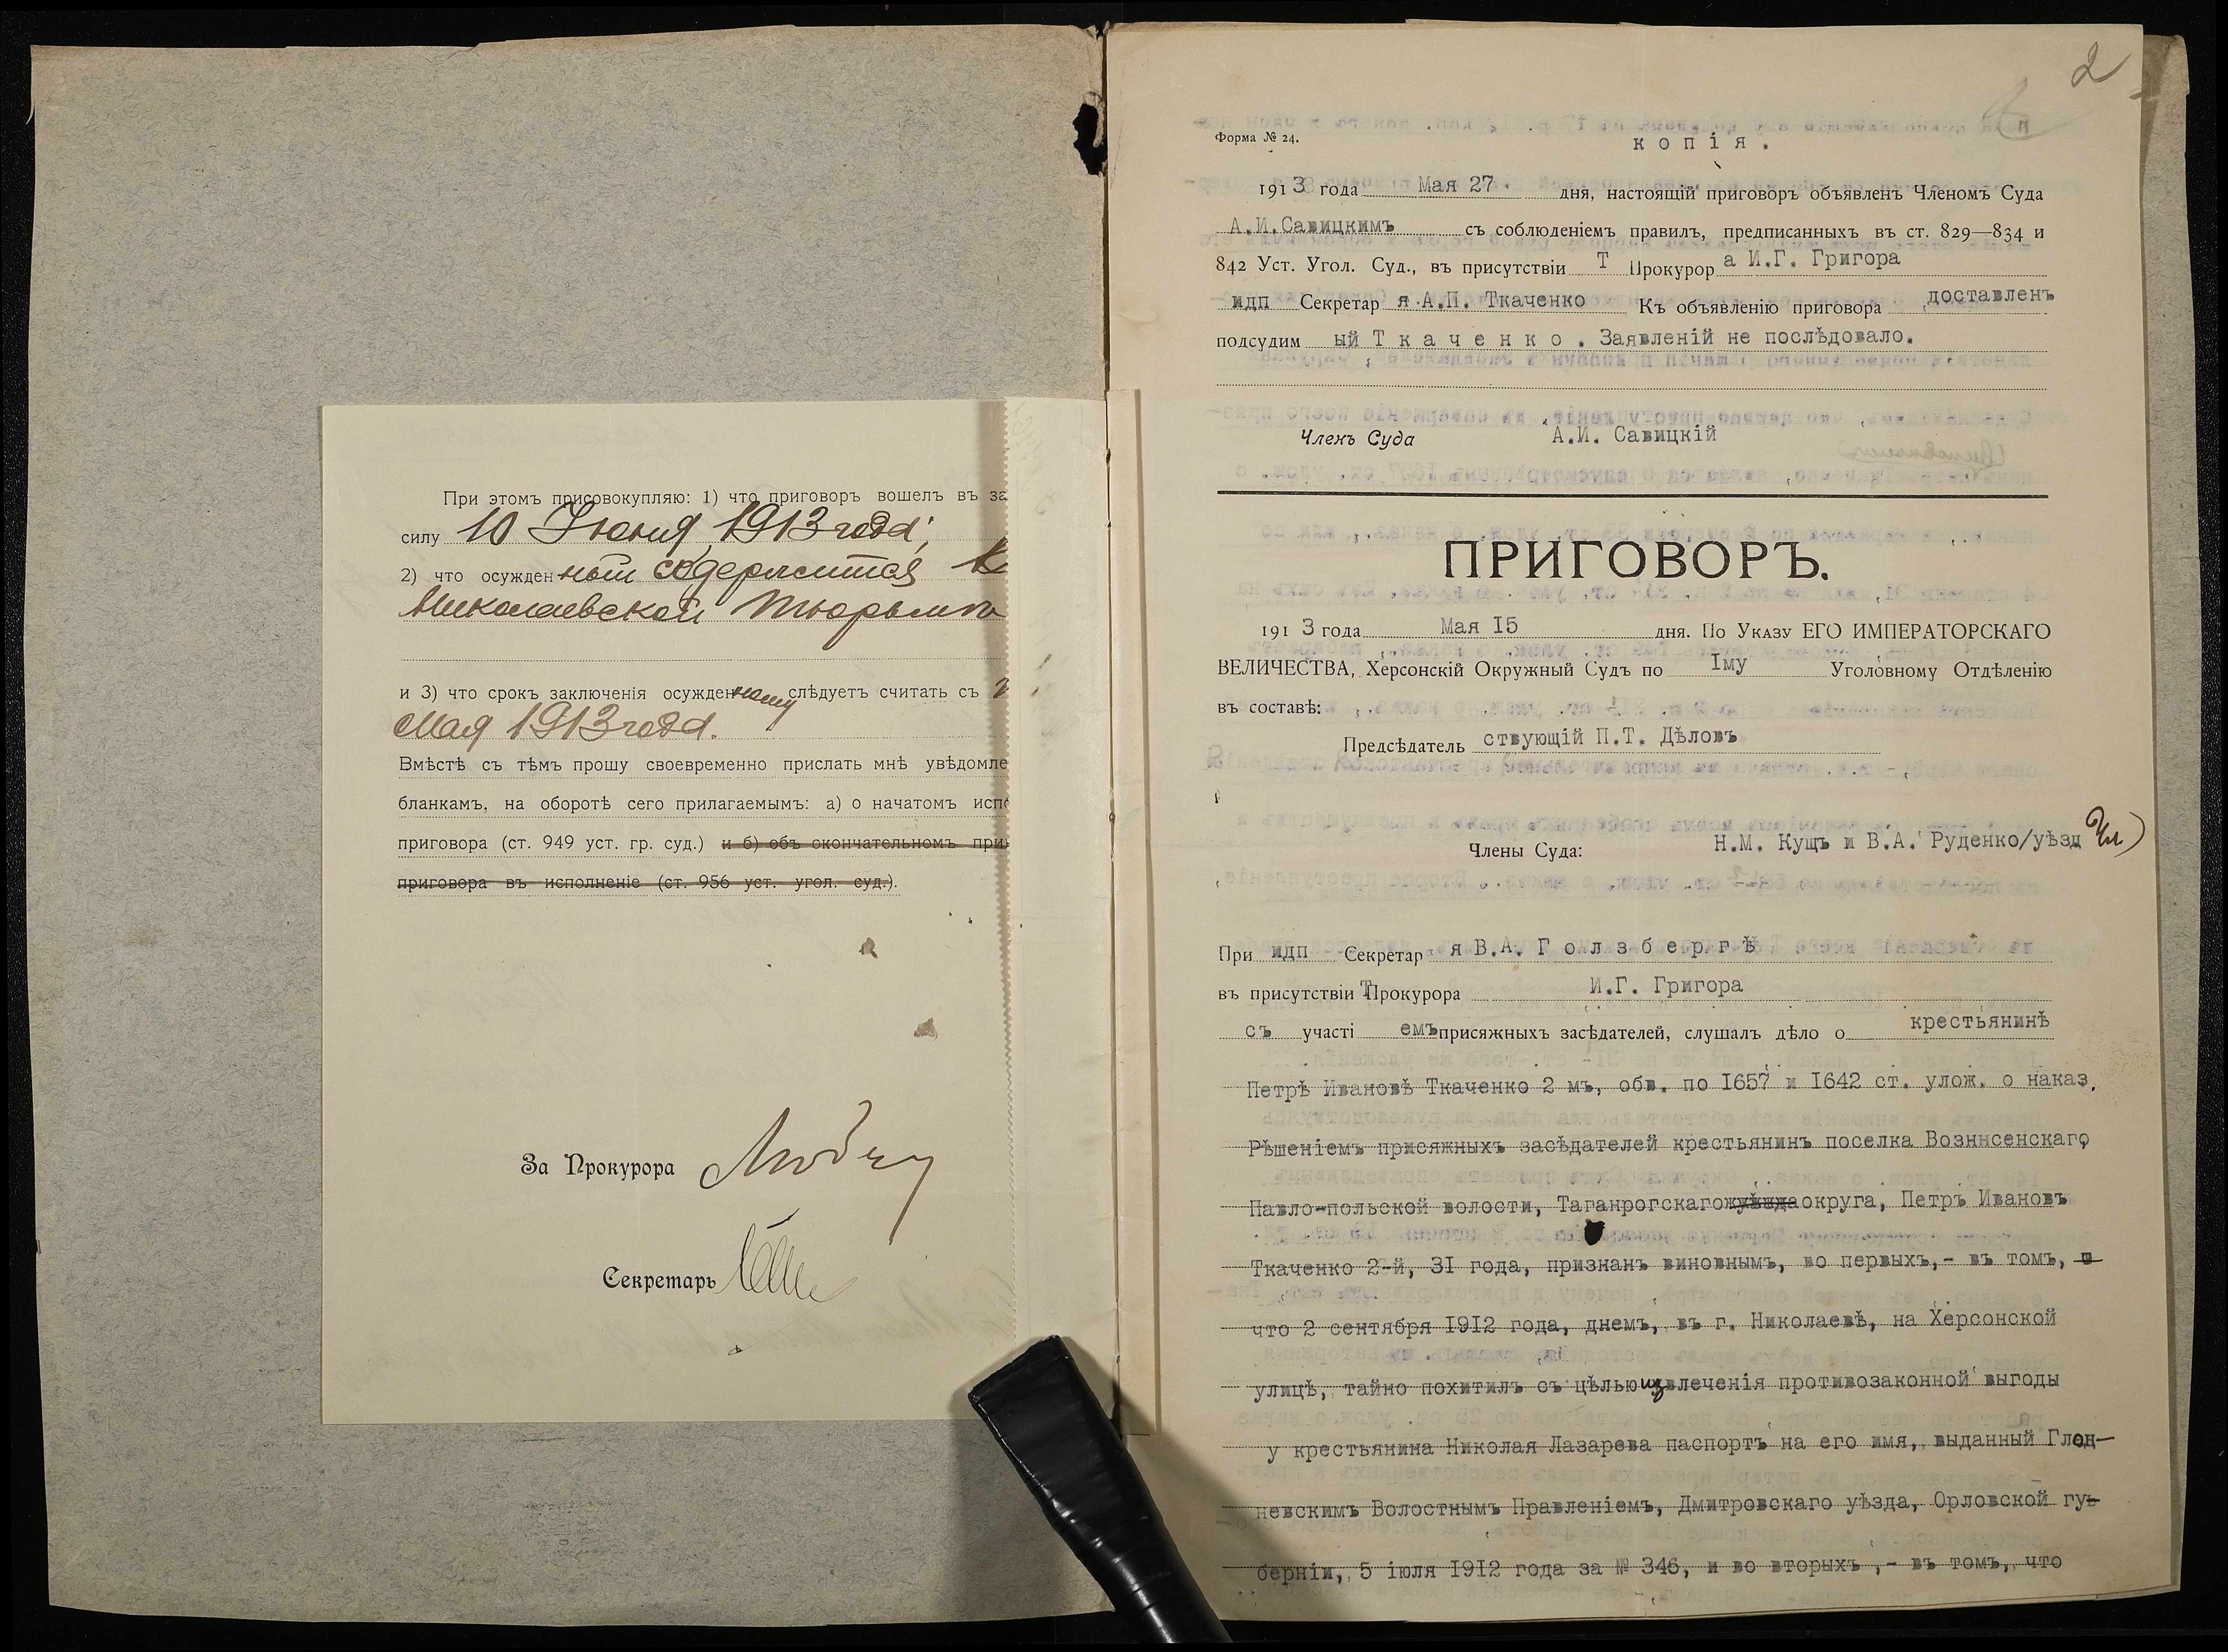 При этомъ присовокупляю: 1) что приговоръ вошелъ въ за
силу 10 Июня 1913 года;
2) что осужденный содержится въ
Николаевской тюрьмѣ
и 3) что срокъ заключенія осужденному слѣдуетъ считать съ
Мая 1913 года.
Вмѣстѣ съ тѣмъ прошу своевременно прислать мнѣ увѣдомле
бланкамъ, на оборотѣ сего прилагаемымъ: а) о начатомъ испо
приговора (ст. 949 уст. гр. суд.) и б) объ окончательномъ при
приговора въ исполненіе (ст. 956 уст. угол. суд.).
За Прокурора
Секретарь
2
Форма № 24.
копія.
1913 года Мая 27. дня, настоящій приговоръ объявленъ Членомъ Суда
А.И.Савицкимъ съ соблюденіемъ правилъ, предписанныхъ въ ст. 829—834 и
842 Уст. Угол. Суд., въ присутствіи Т Прокурора И.Г. Григора
идп Секретаря А.П. Ткаченко Къ объявленію приговора доставленъ
подсудимый Ткаченко. Заявленій не послѣдовало.
Членъ Суда А.И. Савицкій
ПРИГОВОРЪ.
1913 года Мая I5 дня. По Указу ЕГО ИМПЕРАТОРСКАГО
ВЕЛИЧЕСТВА, Херсонскій Окружный Судъ по Iму Уголовному Отдѣленію
въ составѣ:
Предсѣдательствующій П.Т. Дѣловъ
Члены Суда: Н.М. Кущъ и В.А. Руденко/уѣзд Чл)
При идп Секретаря В.А. Голзбергѣ
въ присутствіи Т Прокурора И.Г. Григора
съ участіемъ присяжныхъ засѣдателей, слушалъ дѣло о крестьянинѣ
Петрѣ Ивановѣ Ткаченко 2 мъ, обв. по I657 и I642 ст. улож. о наказ.
Рѣшеніемъ присяжныхъ засѣдателей крестьянинъ поселка Возннсенскаго
Павло-польской волости, Таганрогскаго округа, Петръ Ивановъ
Ткаченко 2-й, 3I года, признанъ виновнымъ, во первыхъ,- въ томъ,
что 2 сентября I9I2 года, днемъ, въ г. Николаевѣ, на Херсонской
улицѣ, тайно похитилъ съ цѣлью извлеченія противозаконной выгоды
у крестьянина Николая Лазарева паспортъ на его имя, выданный Глод-
невскимъ Волостнымъ Правленіемъ, Дмитровскаго уѣзда, Орловской гу-
берніи, 5 іюля I9I2 года за № 346, и во вторыхъ,- въ томъ, что